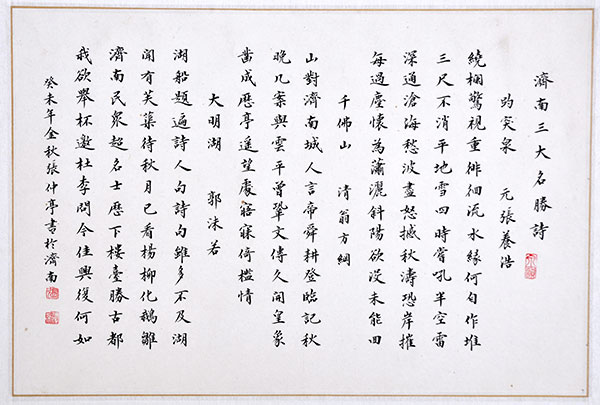 濟南三大名勝詩
趵突泉 元張養浩
繞欄驚視重徘徊流水緣何自作堆
三尺不消平地雪四時嘗吼半空雷
深通滄海愁波盡怒撼秋濤恐岸摧
每過塵懷為瀟灑斜陽欲沒未能回
千佛山 清翁方綱
山對濟南城人言帝舜耕登臨記秋
晚几案與雲平曾鞏文傳久開皇象
鑿成歷亭遥望處寤寐倚檻情
大明湖 郭沫若
湖船題遍詩人句詩句雖多不及湖
聞有芙蕖待秋月已看楊柳化鵝雛
濟南民衆超名士歷下樓臺勝古都
我欲舉杯邀杜李問今佳興復何如
癸未年金秋張仲亭書於濟南